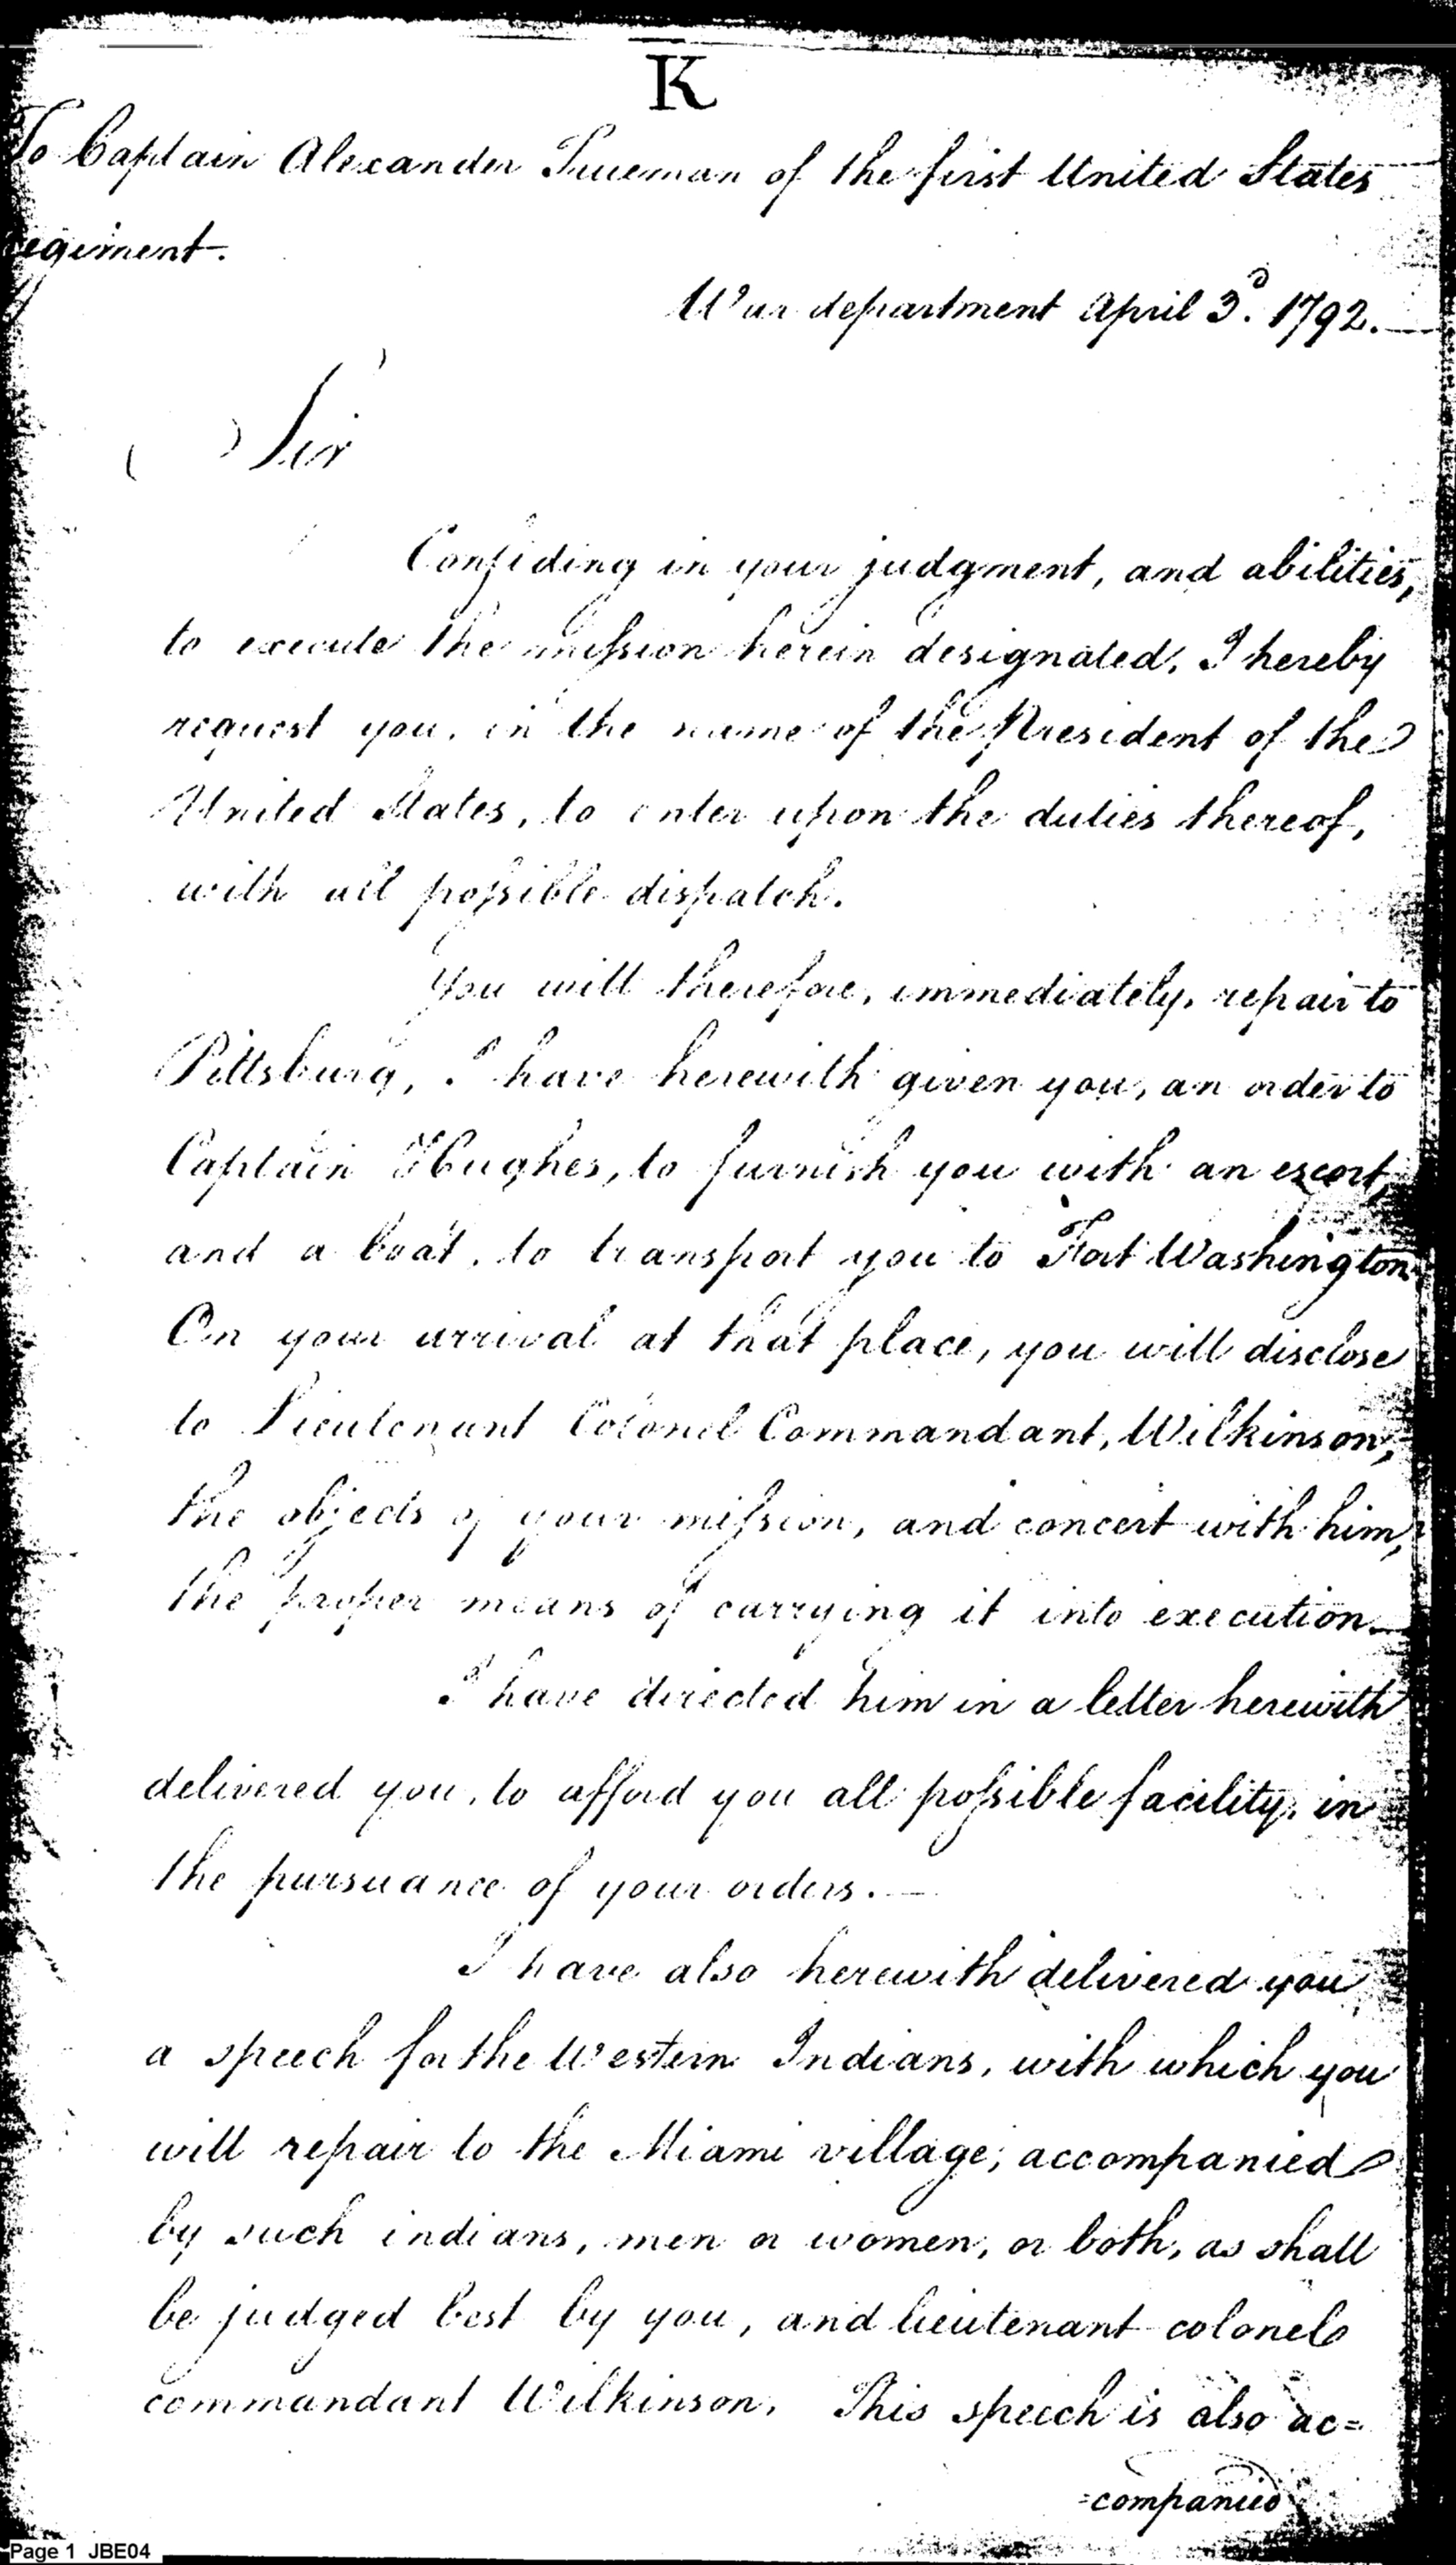 K
To Captain Alexander Trueman of the first United States
regiment.
War department April 3d. 1792.
Sir
Confiding in your judgment, and abilities,
to execute the mission herein designated, I hereby
request you, in the name of the President of the
United States, to enter upon the duties thereof,
with all possible dispatch.
You will therefore, immediately, repair to
Pittsburg, I have herewith given you, an order to
Captain Hughes, to furnish you with an escort,
and a boat, to transport you to Fort Washington.
On your arrival at that place, you will disclose
to Lieutenant Colonel Commandant, Wilkinson,
the objects of your mission, and concert with him,
the proper means of carrying it into execution.
I have directed him in a letter herewith
delivered you, to afford you all possible facility, in
the pursuance of your orders.
I have also herewith delivered you
a speech for the Western Indians, with which you
will repair to the Miami village; accompanied
by such indians, men or women, or both, as shall
be judged best by you, and lieutenant colonel
commandant Wilkinson. This speech is also ac=
=companied
Page 1 JBE04